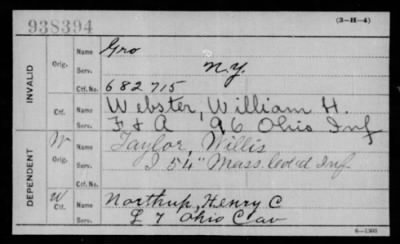 938394
(3-H-4)
INVALID
Orig.
Name Gro
Serv. N.Y.
Ctf. No. 682715
Ctf.
Name Webster, William H.
Serv. F & A 96 Ohio Inf
DEPENDENT
W
Orig.
Name Taylor, Willis
Serv. I 54" Mass. Col'd Inf.
Ctf. No.
W
Ctf.
Name Northup, Henry C
Serv. L 7 Ohio Cav